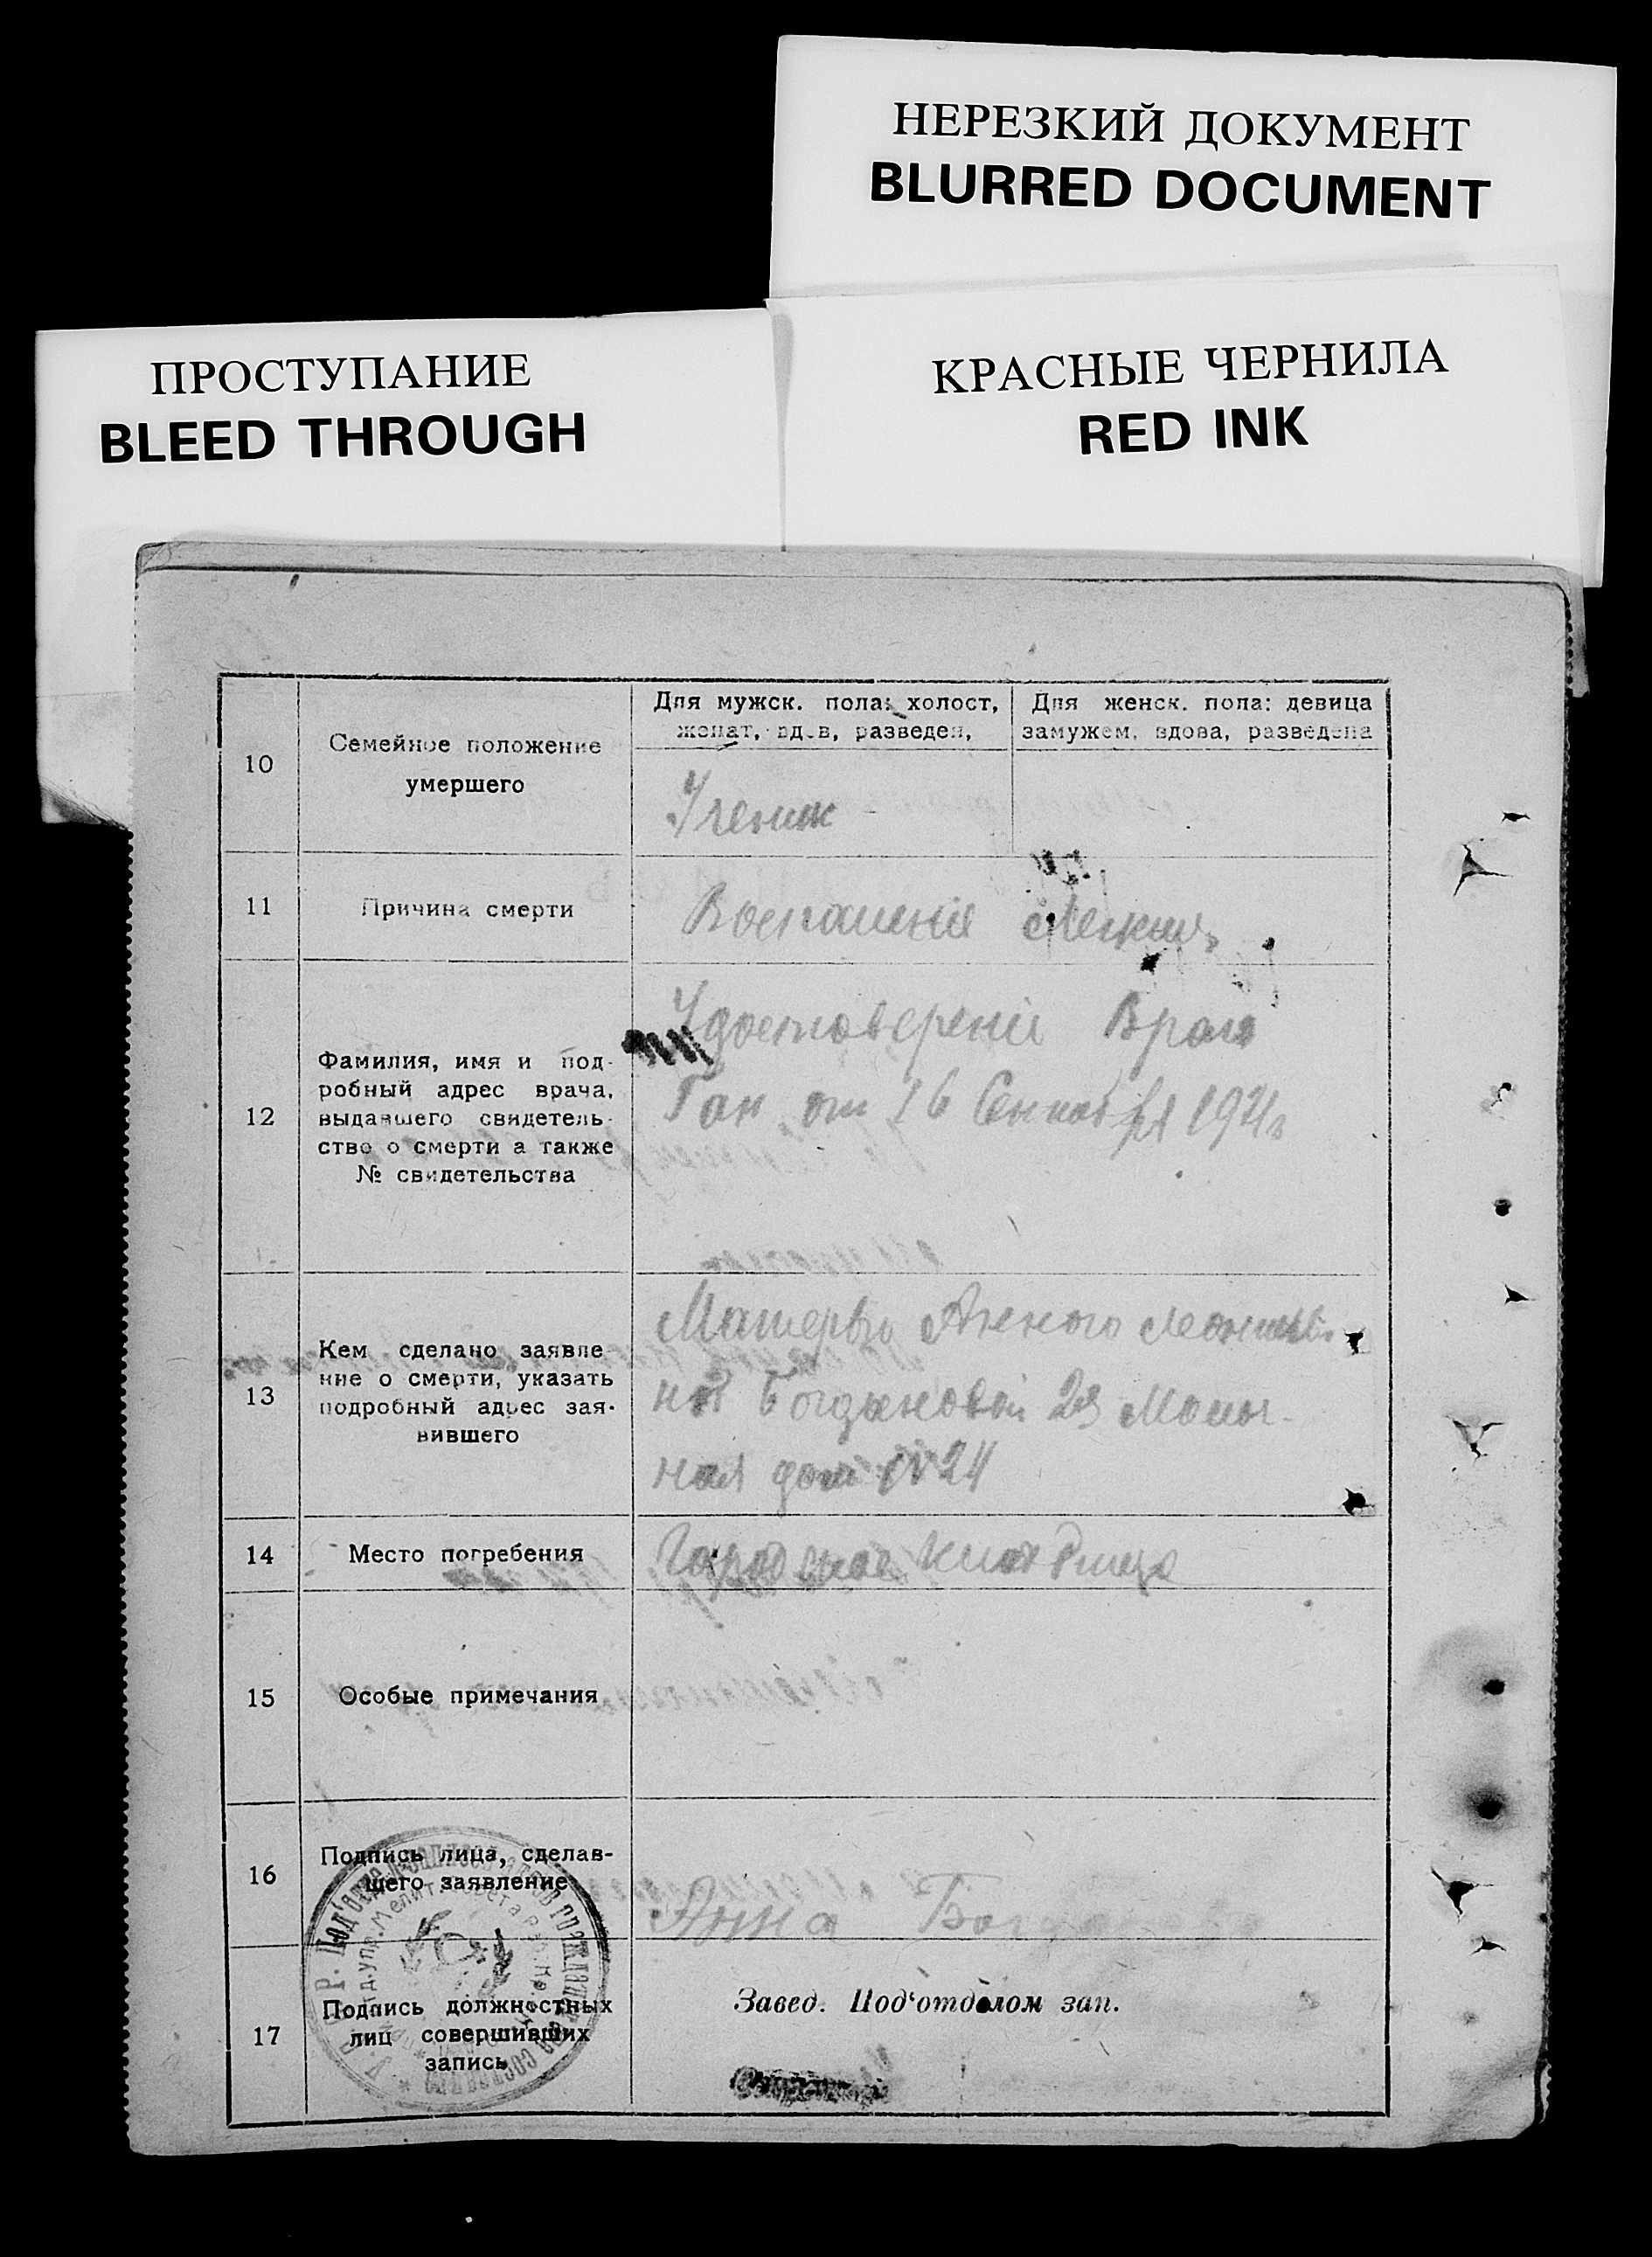 НЕРЕЗКИЙ ДОКУМЕНТ
BLURRED DOCUMENT
ПРОСТУПАНИЕ
BLEED THROUGH
КРАСНЫЕ ЧЕРНИЛА
RED INK
10
Семейное положение
умершего
Для мужск. пола: холост,
женат, вдов, разведен,
Для женск. пола: девица
замужем, вдова, разведена
Ученик
11
Причина смерти
Воспаление Легких
12
Фамилия, имя и под-
робный адрес врача,
выдавшего свидетель-
ство о смерти а также
№ свидетельства
Удостоверени Врача
Ган от 16 Сентября 1921г
13
Кем сделано заявле
ние о смерти, указать
подробный адрес зая-
вившего
Матерью Анною
Богдановой 2я
ная дом № 24
14
Место погребения
Городское кладбище
15
Особые примечания
16
Подпись лица, сделав-
шего заявление
Анна
17
Подпись должностных
лиц совершивших
запись
Завед. Под'отделом зап.